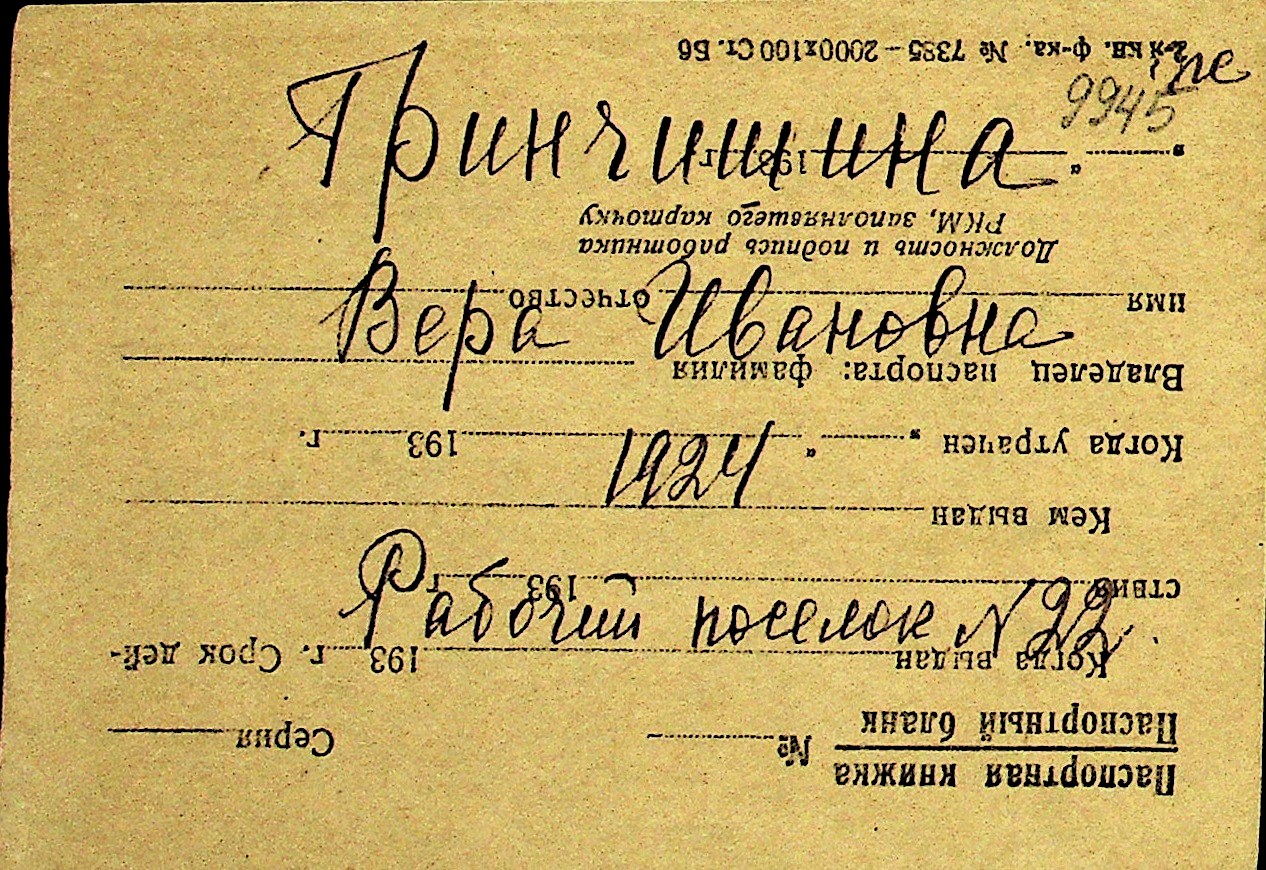 9945
Гринчишина
Вера Ивановна
1924
Рабочий поселок N 22.
Паспортная книжка
Паспортный бланк № Серия
Когда выдан 193 г. Срок дей-
ствия 193 г.
Кем выдан
Когда утрачен „ “ 193 г.
Владелец паспорта: фамилия
имя отчество
Должность и подпись работника
РКМ, заполнявшего карточку
„ “ 193 г.
кв. ф-ка. № 7385 – 2000х100 Ст. Б6